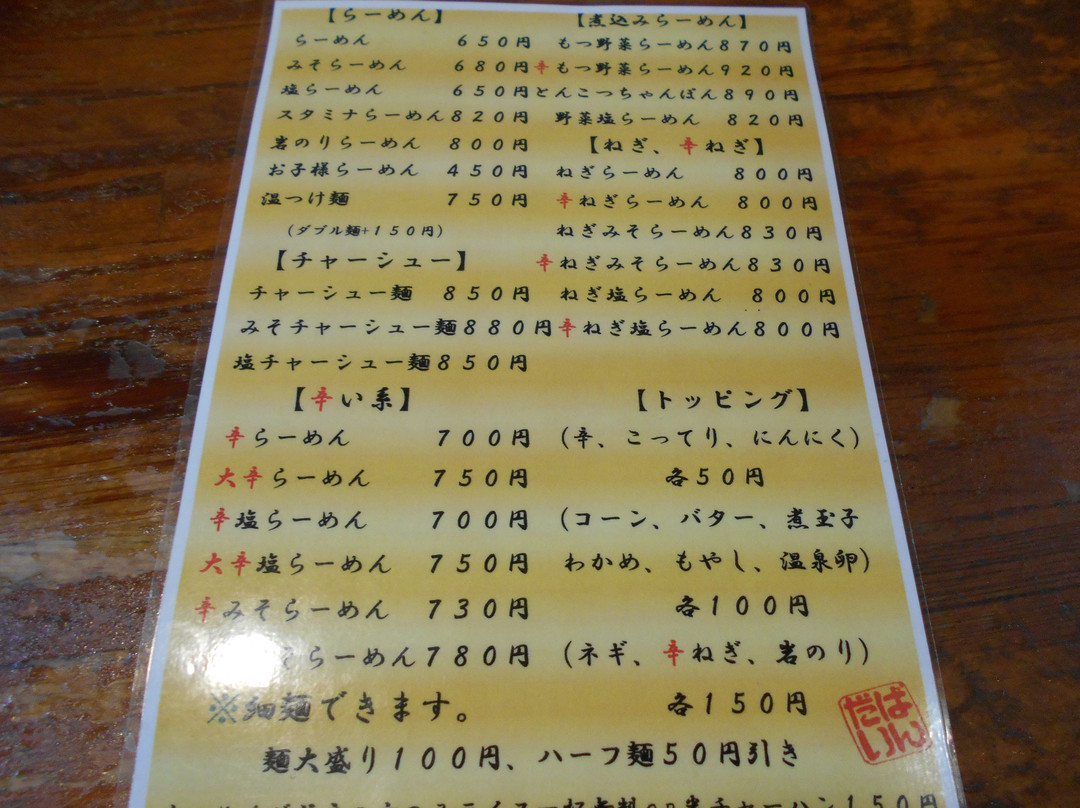 【らーめん】
らーめん 650円
みそらーめん 680円
塩らーめん 650円
スタミナらーめん 820円
岩のりらーめん 800円
お子様らーめん 450円
温つけ麺 750円
(ダブル麺+150円)
【チャーシュー】
チャーシュー麺 850円
みそチャーシュー麺 880円
塩チャーシュー麺 850円
【辛い系】
辛らーめん 700円
大辛らーめん 750円
辛塩らーめん 700円
大辛塩らーめん 750円
辛みそらーめん 730円
そらーめん 780円
※細麺できます。
【煮込みらーめん】
もつ野菜らーめん 870円
辛もつ野菜らーめん 920円
とんこつちゃんぽん 890円
野菜塩らーめん 820円
【ねぎ、辛ねぎ】
ねぎらーめん 800円
辛ねぎらーめん 800円
ねぎみそらーめん 830円
辛ねぎみそらーめん 830円
ねぎ塩らーめん 800円
辛ねぎ塩らーめん 800円
【トッピング】
(辛、こってり、にんにく)
各50円
(コーン、バター、煮玉子
わかめ、もやし、温泉卵)
各100円
(ネギ、辛ねぎ、岩のり)
各150円
ばんだい
麺大盛り100円、ハーフ麺50円引き
半チャーハン150円